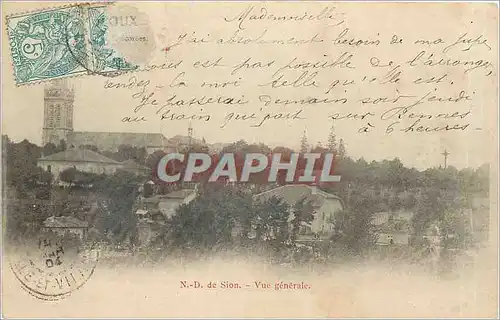 5
OUX
Mademoiselle,
J'ai absolument besoin de ma jupe
est pas possible de l'arranger,
la moi telle qu'elle est.
Je passerai Demain soir jeudi
au train que part sur Rennes
à 6 heures-
CARTPHIL
N.-D. de Sion. - Vue générale.
04